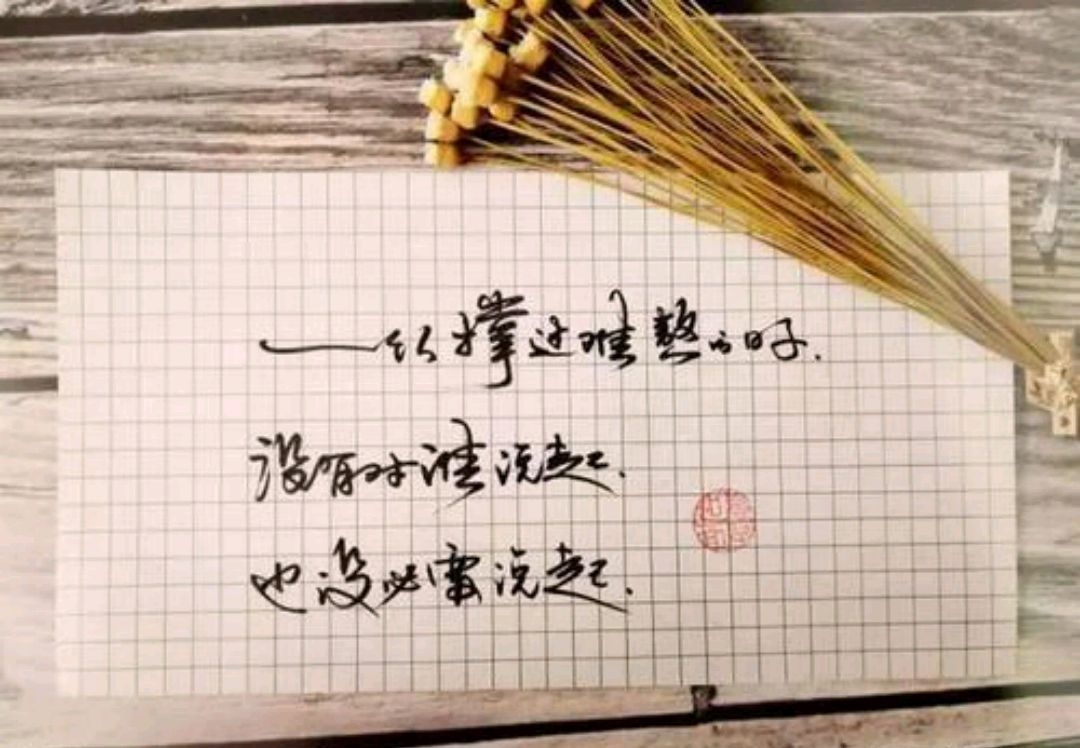 一径撑过难熬的日子.
没有对谁说起.
也没必要说起.